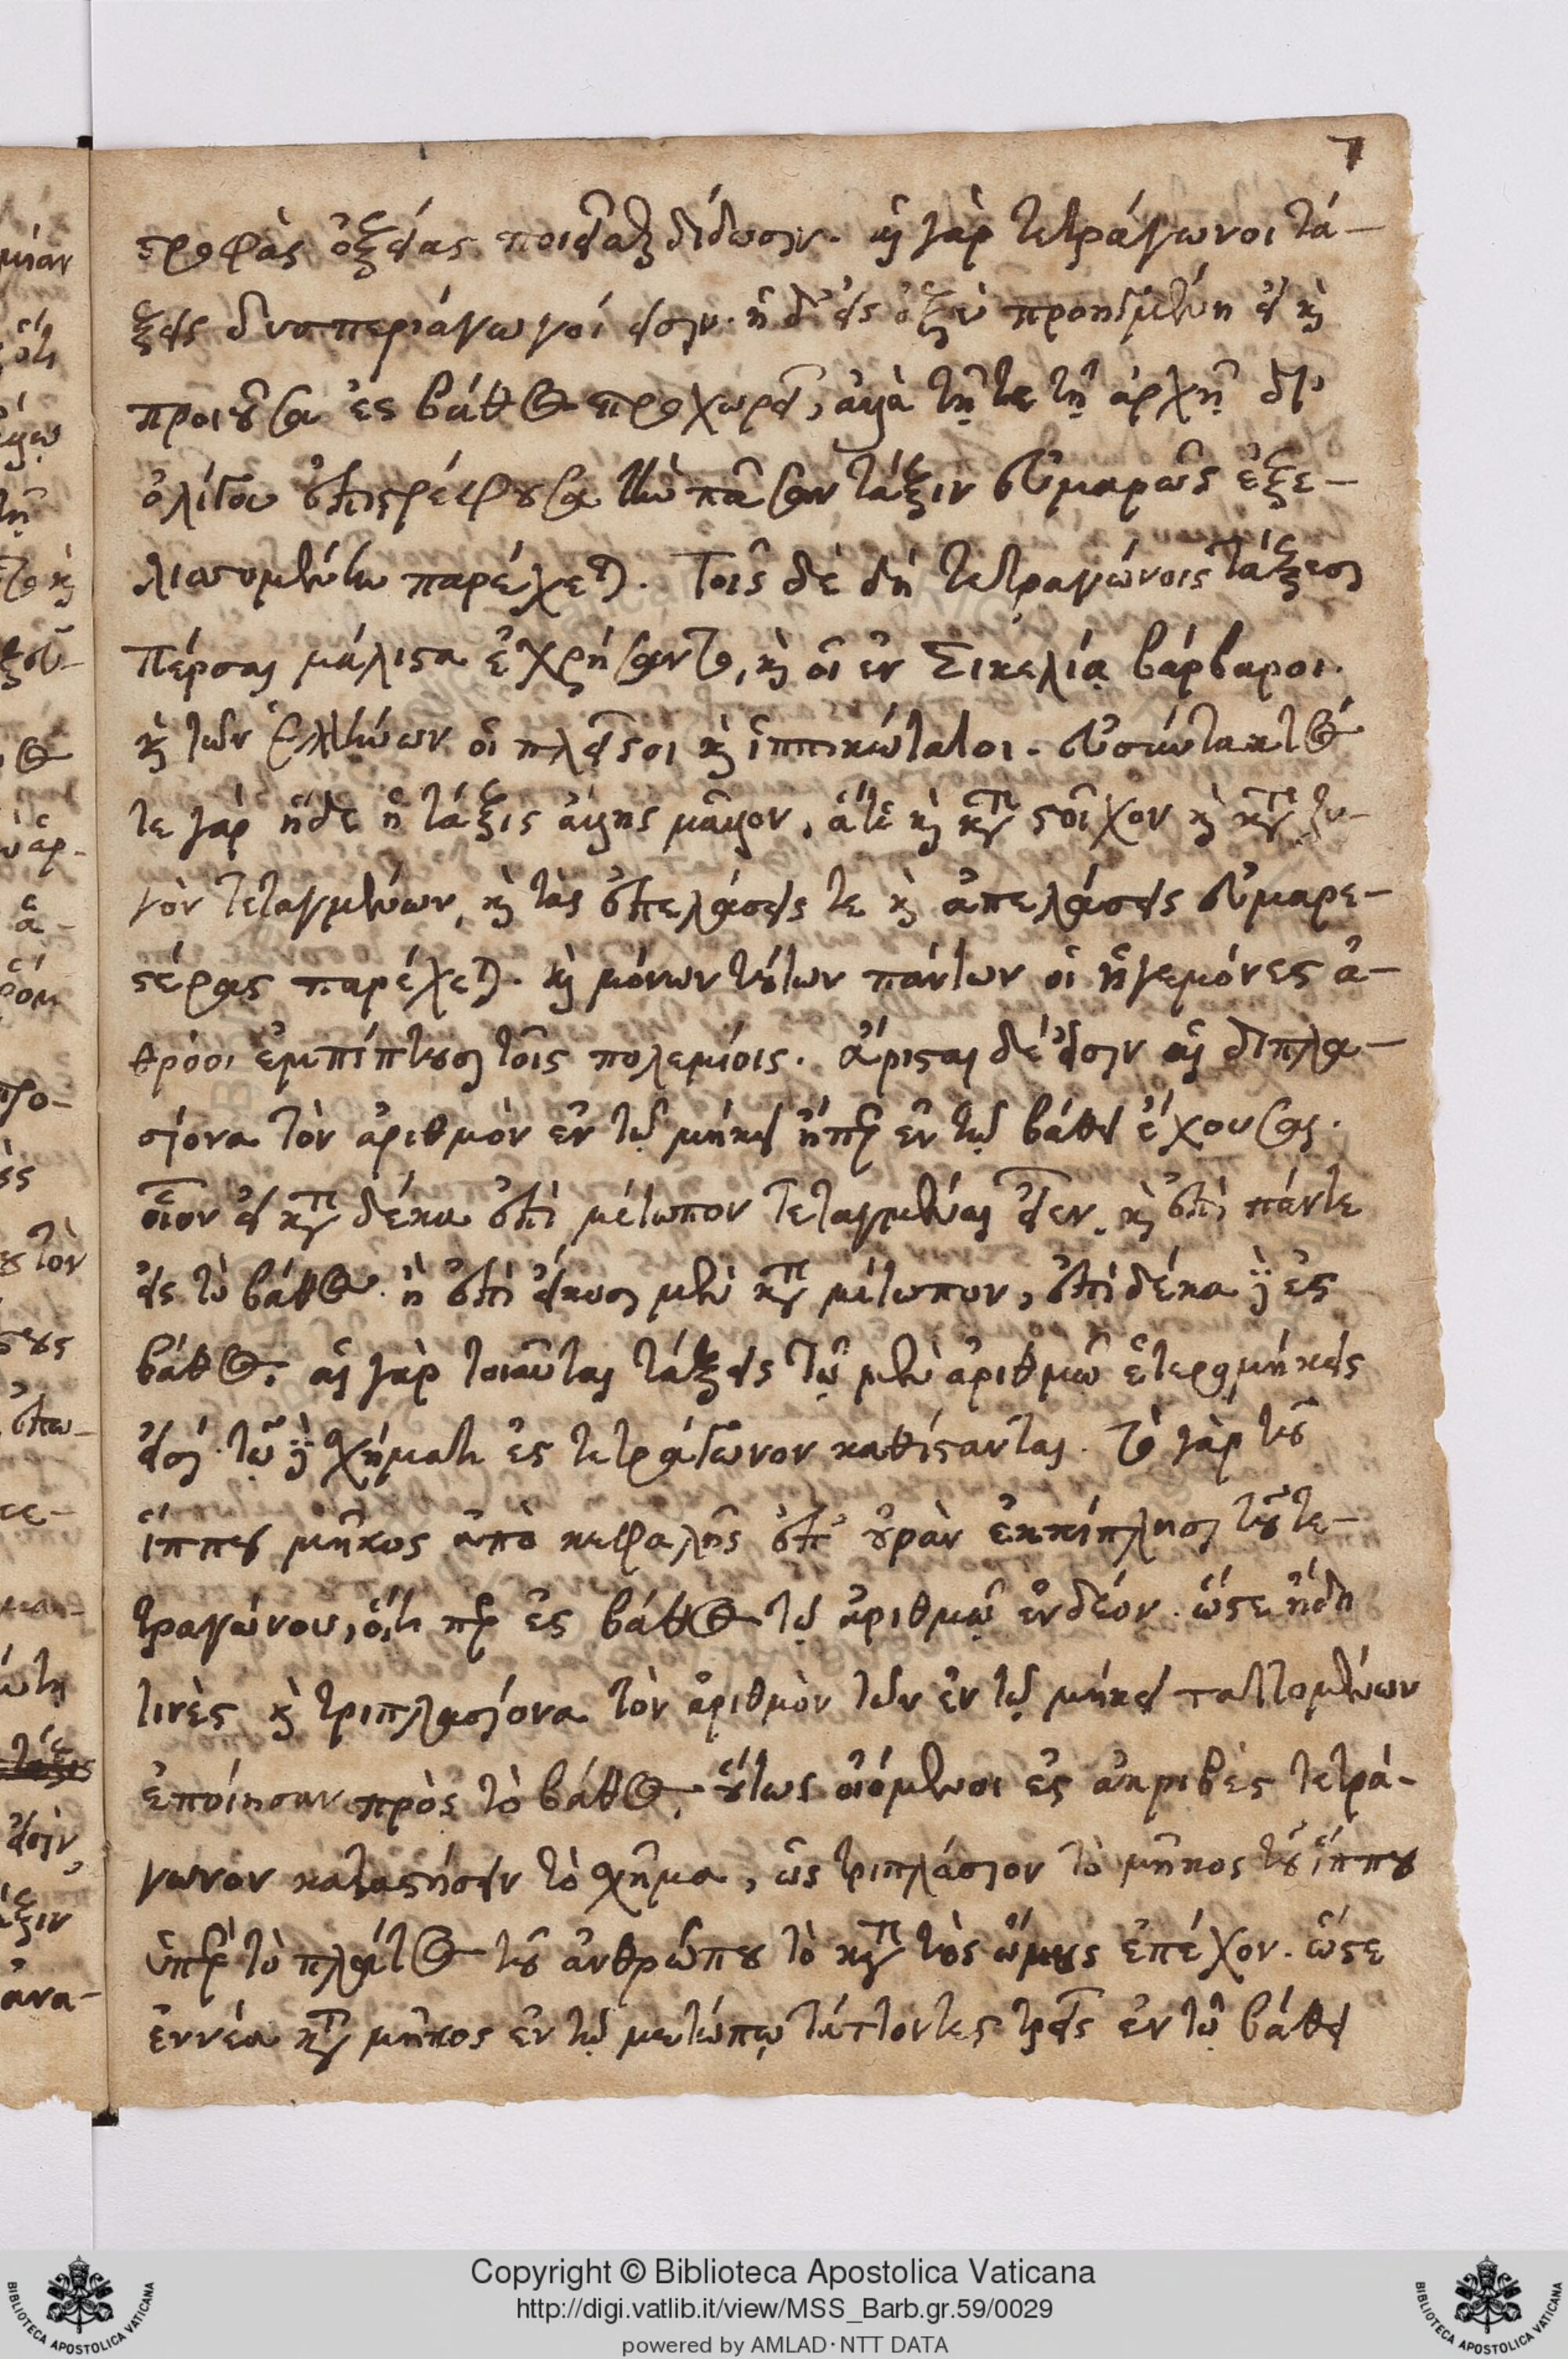 7
στροφὰς ὀξείας ποιεῖσθαι δίδωσιν. αἱ γὰρ τετράγωνοι τά-
ξεις δυσπεριάγωγοί εἰσιν. ἡ δ' εἰς ὀξὺ προηγμένη εἰ καὶ
προιοῦσα ἐς βάθος προχωρεῖ, ἀλλὰ τῇ τε τῇ ἀρχῇ δι'
ὀλίγου ἐπιστρέφουσα τὴν πᾶσαν τάξιν εὐμαρῶς ἐξε-
λισσομένην παρέχεται. Τοῖς δὲ δὴ τετραγώνοις τάξεσι
Πέρσαι μάλιστα ἐχρήσαντο, καὶ οἱ ἐν Σικελίᾳ βάρβαροι.
καὶ τῶν Ἑλλήνων οἱ πλεῖστοι καὶ ἱππικώτατοι. εὐσύντακτός
τε γὰρ ἥδε ἡ τάξις ἄλλης μᾶλλον, ἅτε καὶ κατὰ στοῖχον καὶ κατὰ ζυ-
γὸν τεταγμένων, καὶ τὰς ἐπελάσεις τε καὶ ἀπελάσεις εὐμαρε-
στέρας παρέχεται. καὶ μόνων τούτων πάντων οἱ ἡγεμόνες ἀ-
θρόοι ἐμπίπτουσι τοῖς πολεμίοις. ἄρισται δέ εἰσιν αἱ διπλα-
σίονα τὸν ἀριθμὸν ἐν τῷ μήκει ἤπερ ἐν τῷ βάθει ἔχουσαι.
οἷον εἰ κατὰ δέκα ἐπὶ μέτωπον τεταγμέναι εἶεν, καὶ ἐπὶ πέντε
εἰς τὸ βάθος. ἢ ἐπὶ εἴκοσι μὲν κατὰ μέτωπον, ἐπὶ δέκα δὲ ἐς
βάθος. αἱ γὰρ τοιαῦται τάξεις τῷ μὲν ἀριθμῷ ἑτερομήκεις
εἰσί. τῷ δὲ σχήματι ἐς τετράγωνον καθίστανται. τὸ γὰρ τοῦ
ἵππου μῆκος ἀπὸ κεφαλῆς ἐπ' οὐρὰν ἐκπίπλησι τοῦ τε-
τραγώνου, ὅ,τι περ ἐς βάθος τῷ ἀριθμῷ ἐνδέον. ὥστε ἤδη
τινὲς καὶ τριπλασίονα τὸν ἀριθμὸν τῶν ἐν τῷ μήκει ταττομένων
ἐποίησαν πρὸς τὸ βάθος, οὕτως οἰόμενοι ἐς ἀκριβὲς τετρά-
γωνον καταστήσειν τὸ σχῆμα, ὡς τριπλάσιον τὸ μῆκος τοῦ ἵππου
ὑπὲρ τὸ πλάτος τοῦ ἀνθρώπου τὸ κατὰ τοὺς ὤμους ἐπέχον. ὥστε
ἐννέα κατὰ μῆκος ἐν τῷ μετώπῳ τάττοντες τρεῖς ἐν τῷ βάθει
Copyright © Biblioteca Apostolica Vaticana
http://digi.vatlib.it/view/MSS_Barb.gr.59/0029
powered by AMLAD·NTT DATA
BIBLIOTECA APOSTOLICA VATICANA
BIBLIOTECA APOSTOLICA VATICANA